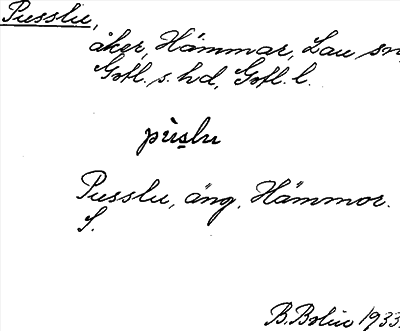 Pusslu,
åker, Hämmar, Lau sn,
Gotl. s. hd, Gotl. l.
pùslu
Pusslu, äng, Hämmor.
S.
B. Bolin 1933.